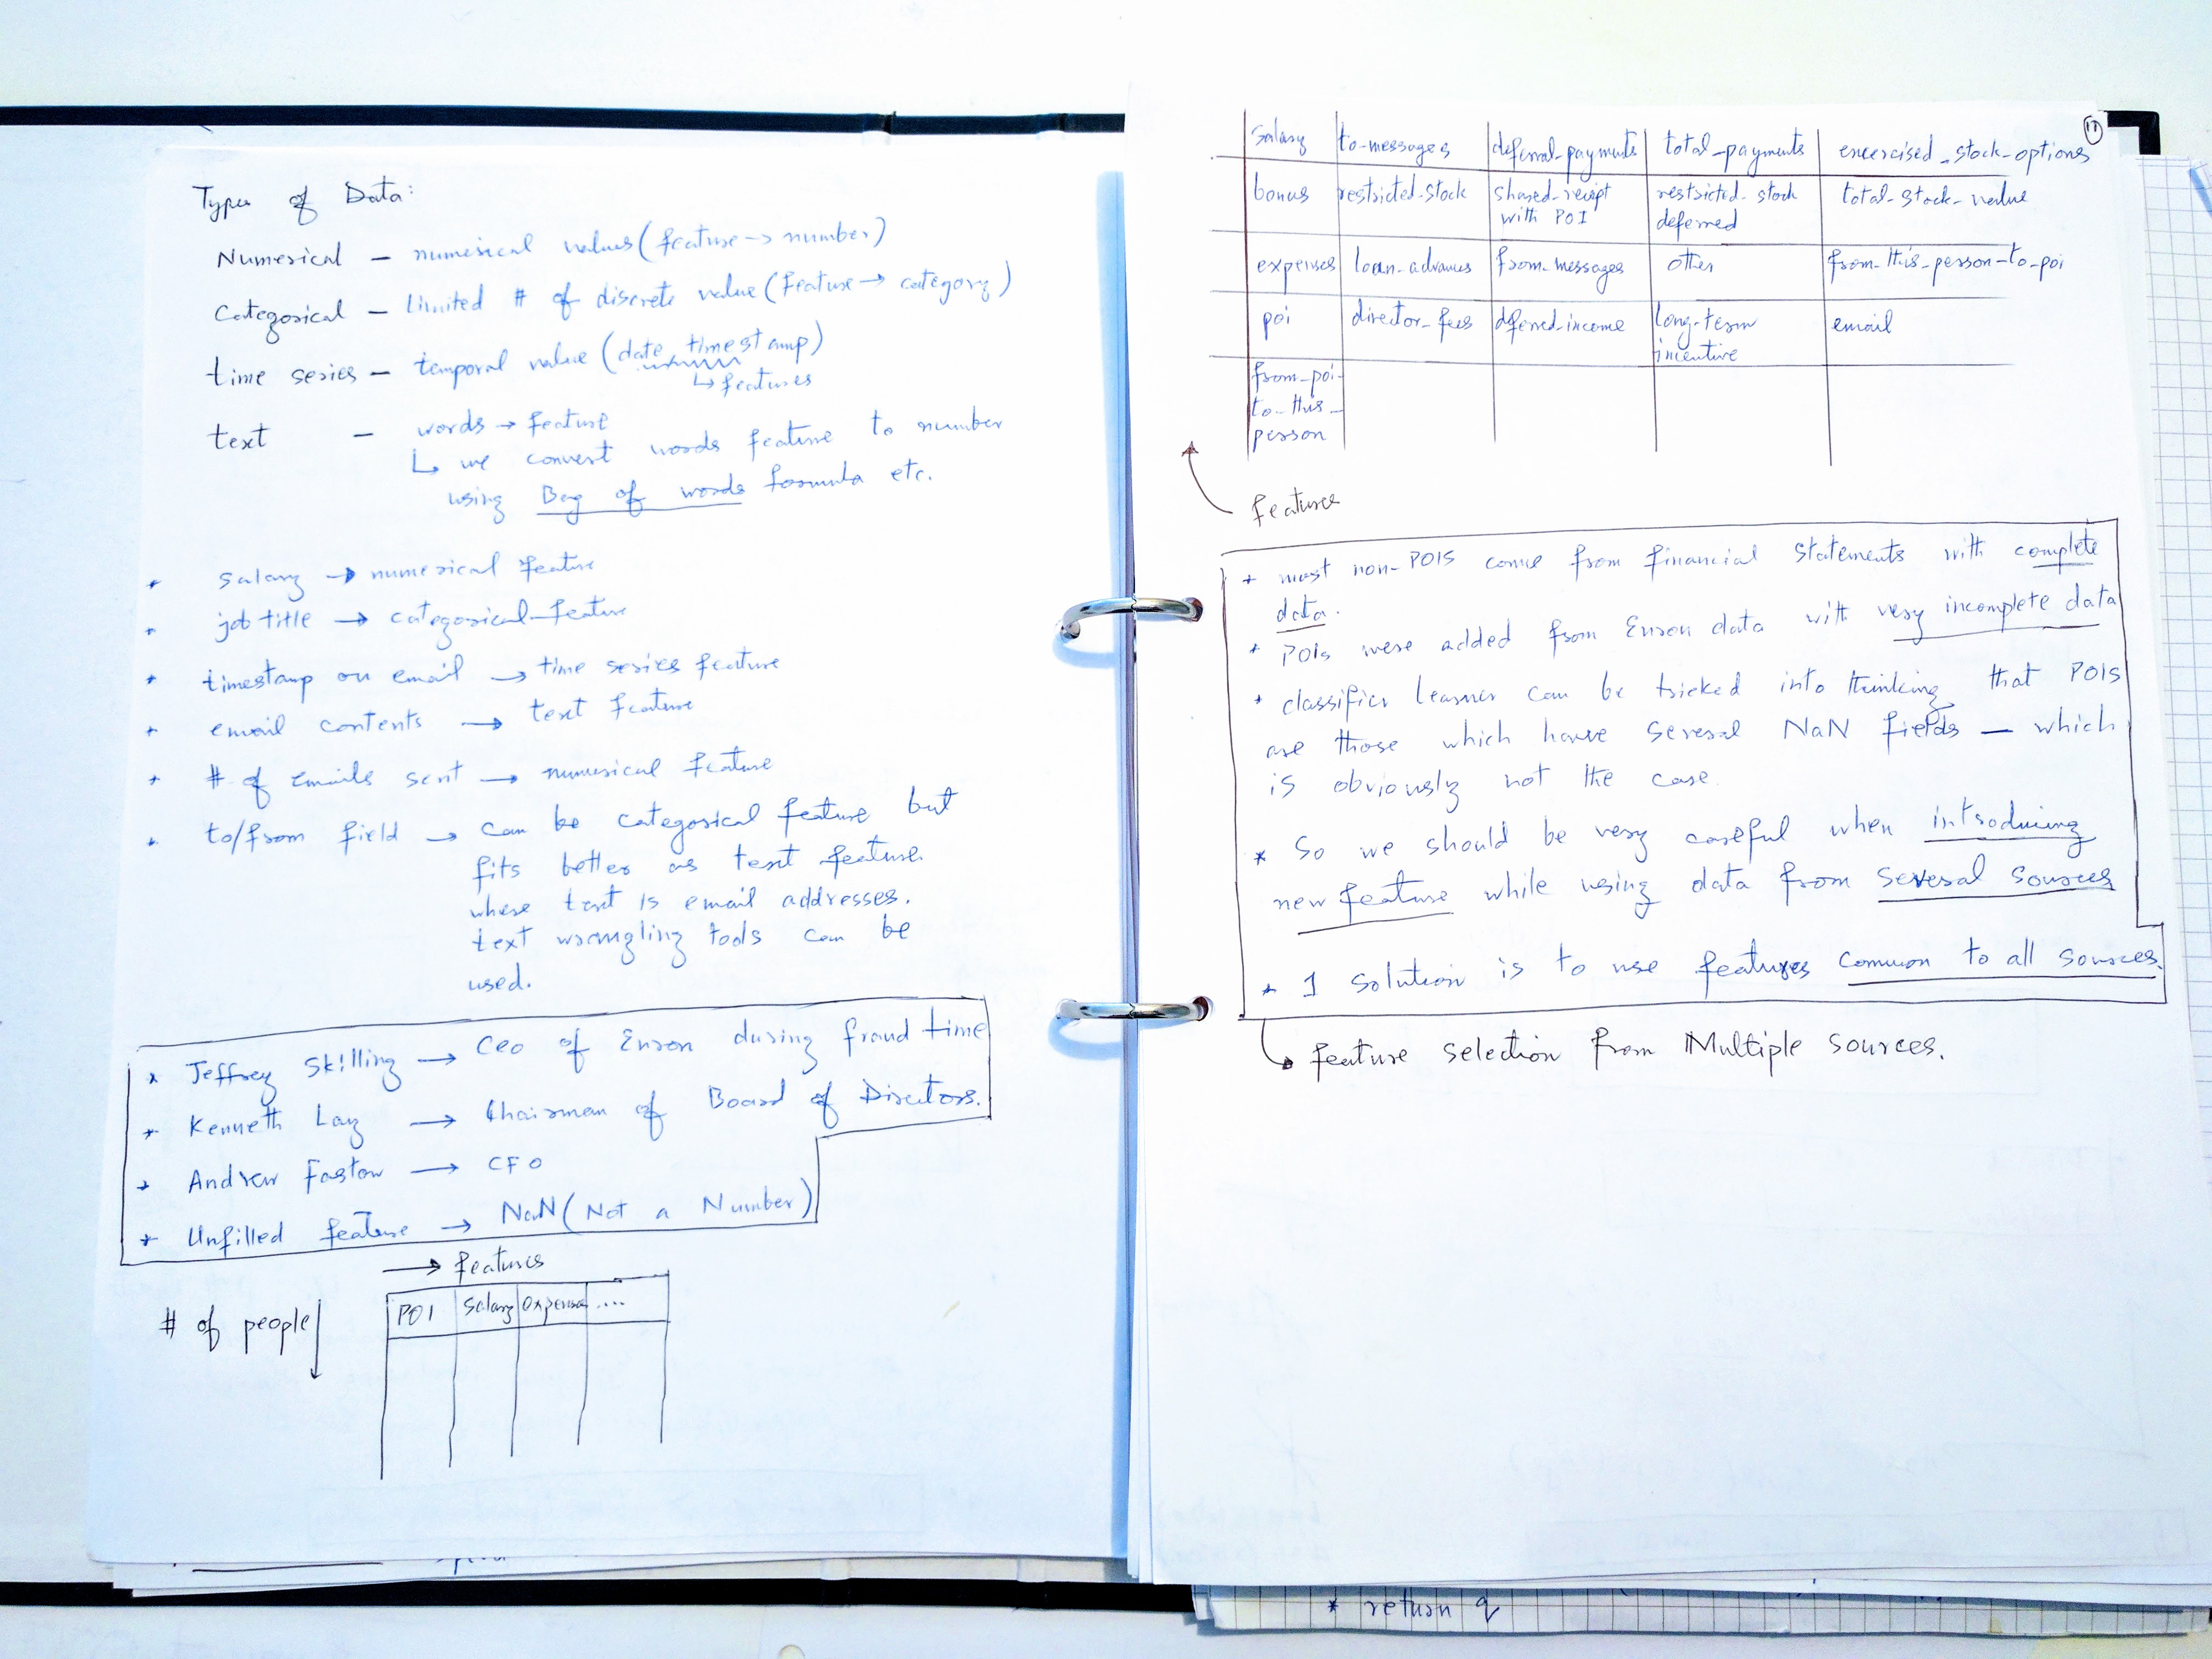 Types of Data:
Numerical — numerical values (feature → number)
Categorical — Limited # of discrete value (Feature → category)
time series — temporal value (date, timestamp)
↳ features
text — words → feature
↳ we convert words feature to number
using Bag of words formula etc.
* salary → numerical feature
* job title → categorical feature
* timestamp on email → time series feature
* email contents → text feature
* # of emails sent → numerical feature
* to/from field → can be categorical feature but
fits better as text feature.
where text is email addresses.
text wrangling tools can be
used.
* Jeffrey Skilling → CEO of Enron during fraud time
* Kenneth Lay → Chairman of Board of Directors.
* Andrew Fastow → CFO
* Unfilled feature → NaN (Not a Number)
→ features
# of people ↓
POI | Salary | expense | ....
11
Salary | to-messages | deferral_payments | total_payments | excercised_stock_options
bonus | restricted_stock | shared_reciept with POI | restricted_stock deferred | total_stock_value
expenses | loan_advances | from_messages | other | from_this_person_to_poi
poi | director_fees | deferred_income | long_term incentive | email
from_poi_to_this_person
features
* most non-POIS come from financial statements with complete
data.
* POIs were added from Enron data with very incomplete data
* classifier learner can be tricked into thinking that POIS
are those which have several NaN fields — which
is obviously not the case.
* So we should be very careful when introducing
new feature while using data from several sources
* 1 solution is to use features common to all sources.
↳ feature selection from Multiple sources.
* return q